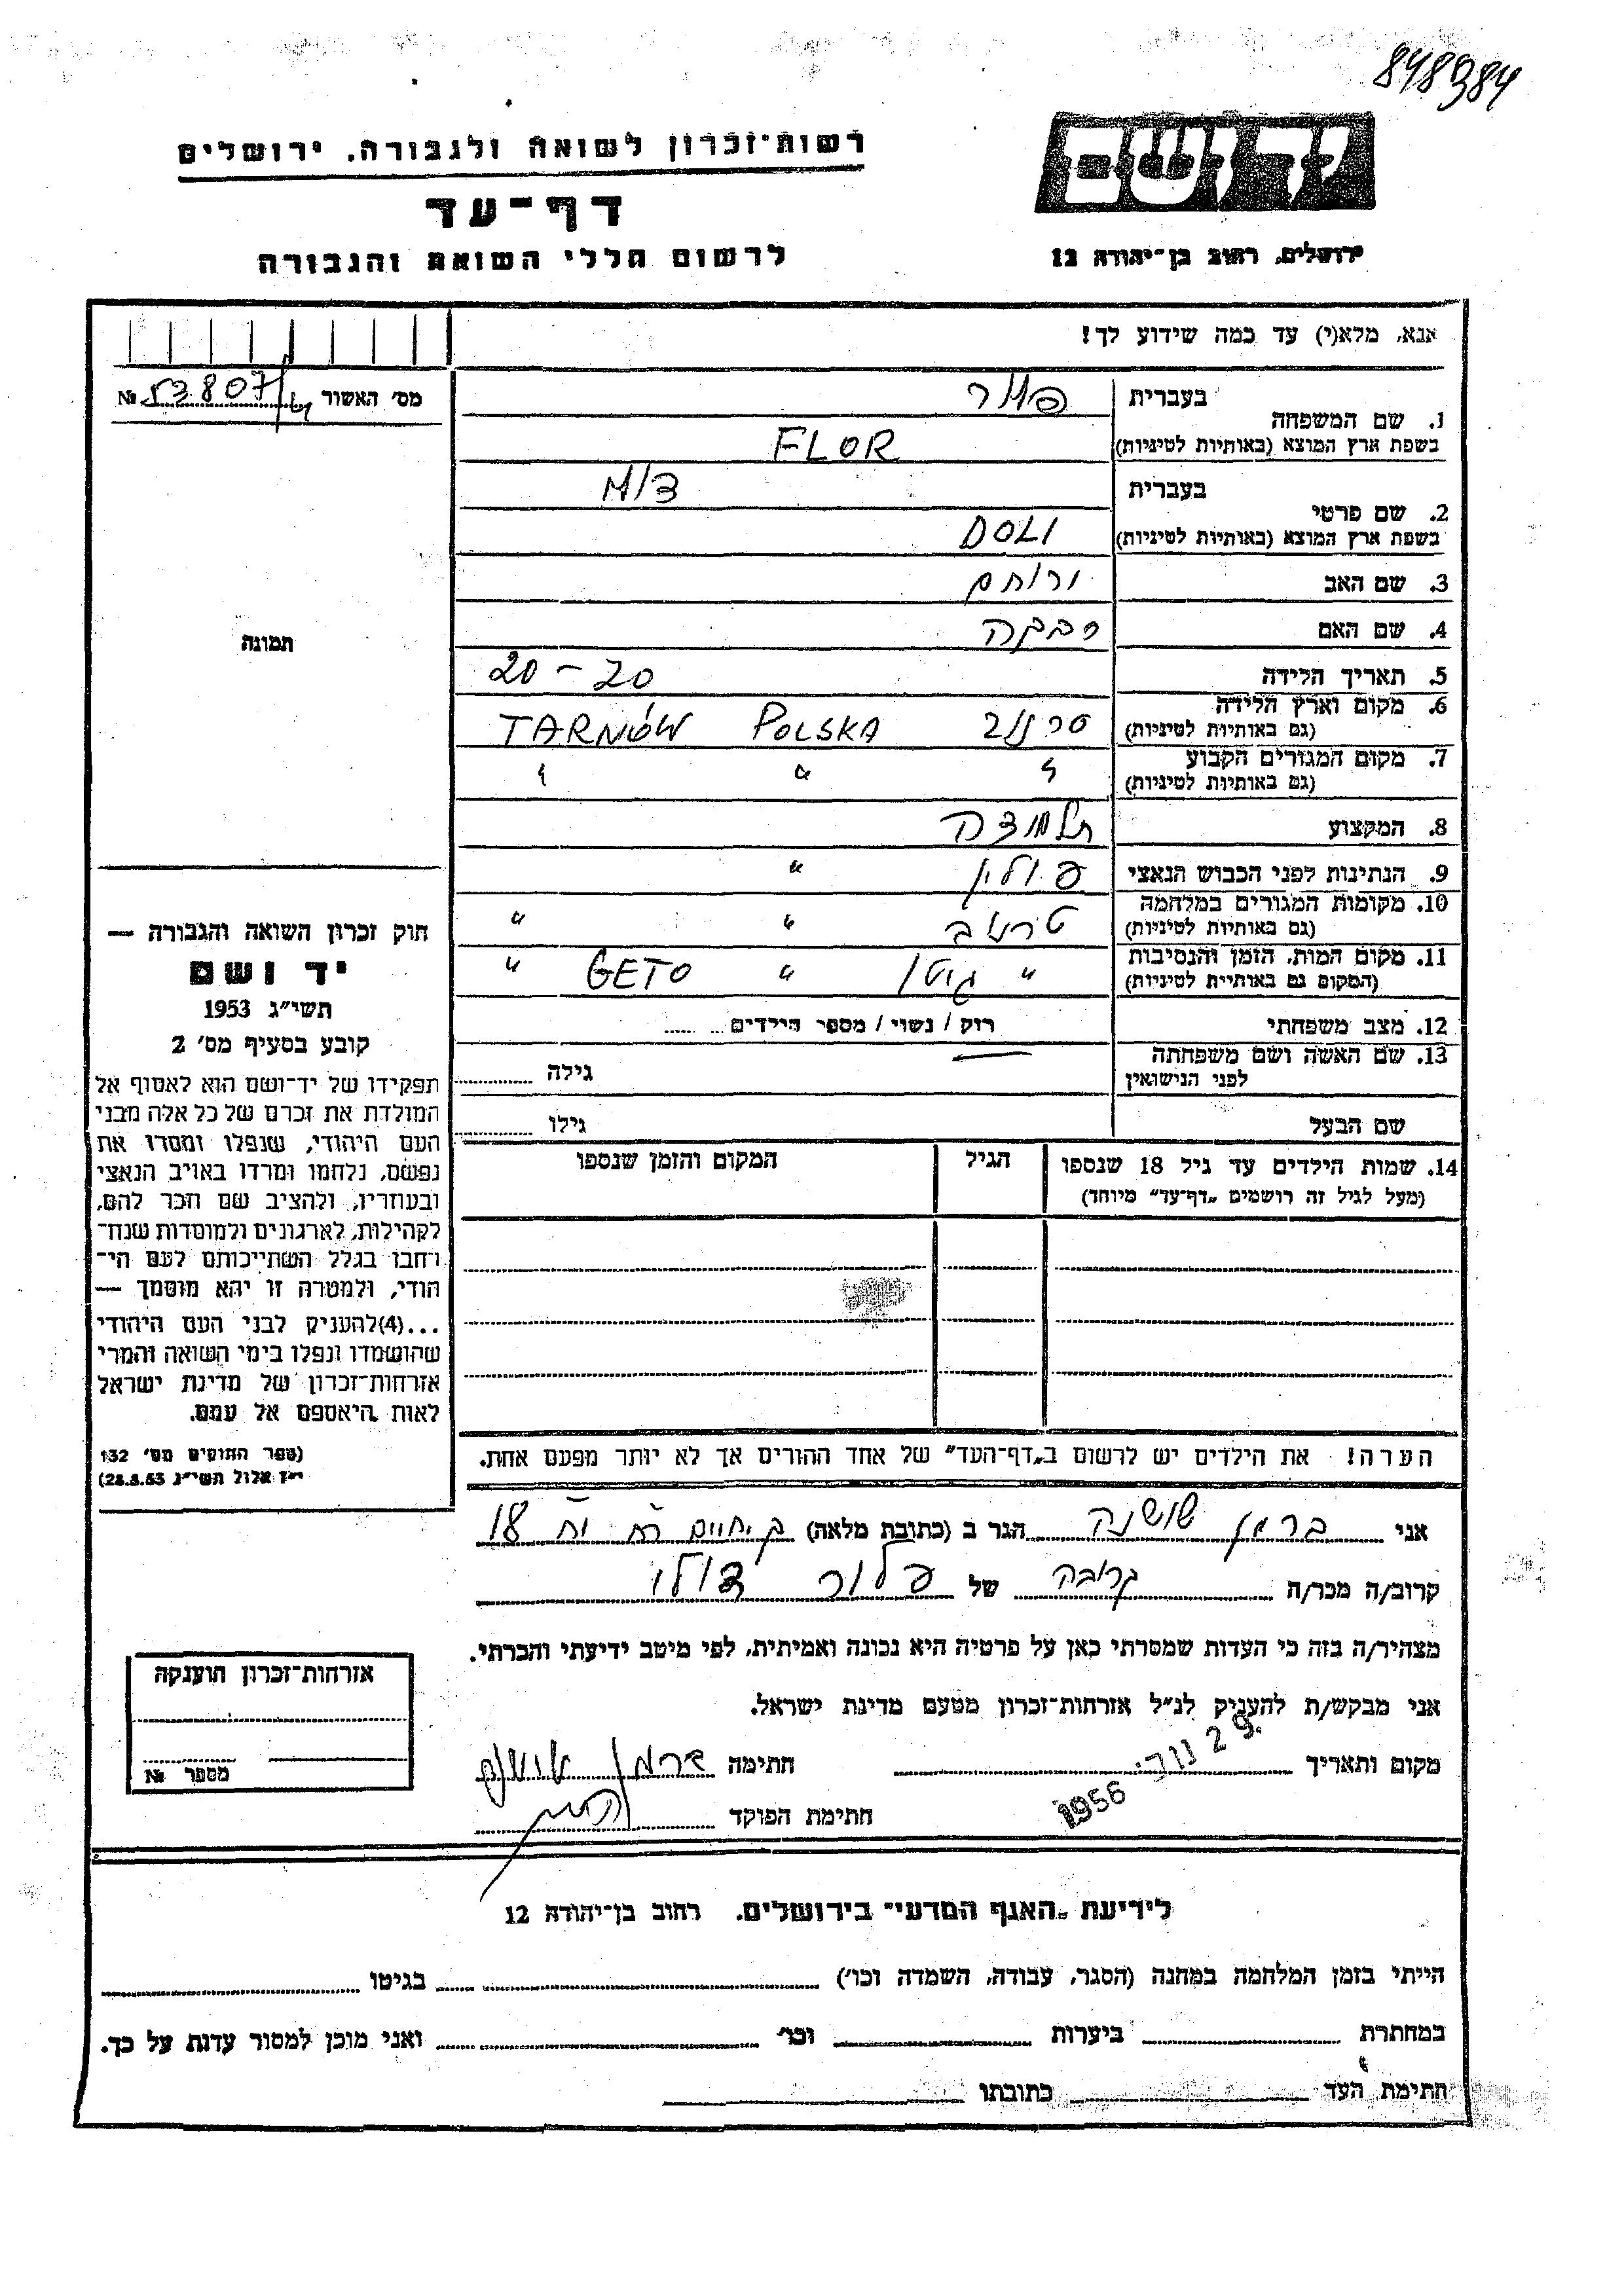 848384
יד ושם
רשות־זכרון לשואה ולגבורה, ירושלים
דף־עד
לרשום חללי השואה והגבורה
ירושלים, רחוב בן־יהודה 12
אנא, מלא(י) עד כמה שידוע לך!
מס' האשור № 53807
1. שם המשפחה
בעברית
בשפת ארץ המוצא (באותיות לטיניות) FLOR
2. שם פרטי
בעברית
בשפת ארץ המוצא (באותיות לטיניות) DOLI
3. שם האב ירוחם
4. שם האם רבקה
תמונה
5. תאריך הלידה 20 – 20
6. מקום וארץ הלידה
(גם באותיות לטיניות) TARNÓW POLSKA
7. מקום המגורים הקבוע
(גם באותיות לטיניות) " " "
8. המקצוע תלמידה
9. הנתינות לפני הכבוש הנאצי פולין "
10. מקומות המגורים במלחמה
(גם באותיות לטיניות) " "
11. מקום המות, הזמן והנסיבות
(המקום גם באותיית לטיניות) " גיטו " GETO "
12. מצב משפחתי רוק / נשוי / מספר הילדים
13. שם האשה ושם משפחתה
לפני הנישואין גילה
שם הבעל גילו
14. שמות הילדים עד גיל 18 שנספו
(מעל לגיל זה רושמים „דף־עד" מיוחד)
הגיל
המקום והזמן שנספו
חוק זכרון השואה והגבורה —
יד ושם
תשי"ג 1953
קובע בסעיף מס' 2
תפקידו של יד־ושם הוא לאסוף אל
המולדת את זכרם של כל אלה מבני
העם היהודי, שנפלו ומסרו את
נפשם, נלחמו ומרדו באויב הנאצי
ובעוזריו, ולהציב שם וזכר להם,
לקהילות, לארגונים ולמוסדות שנח־
רחבו בגלל השתייכותם לעם הי־
הודי, ולמטרה זו יהא מוסמך —
...(4)להעניק לבני העם היהודי
שהושמדו ונפלו בימי השואה והמרי
אזרחות־זכרון של מדינת ישראל
לאות היאספם אל עמם.
(ספר החוקים מס' 132
י"ז אלול תשי"ג 28.8.53)
הערה! את הילדים יש לרשום ב„דף־העד" של אחד ההורים אך לא יותר מפעם אחת.
אני ברמן שושנה הגר ב (כתובת מלאה) 18
קרוב/ה מכר/ה קרובה של פלור דולי
מצהיר/ה בזה כי העדות שמסרתי כאן על פרטיה היא נכונה ואמיתית, לפי מיטב ידיעתי והכרתי.
אני מבקש/ת להעניק לנ"ל אזרחות־זכרון מטעם מדינת ישראל.
מקום ותאריך 29 נוב' 1956 חתימה ברמן שושנה
חתימת הפוקד
אזרחות־זכרון הוענקה
מספר №
לידיעת „האגף המדעי" בירושלים. רחוב בן־יהודה 12
הייתי בזמן המלחמה במחנה (הסגר, עבודה, השמדה וכו') בגיטו
במחתרת ביערות וכו' ואני מוכן למסור עדות על כך.
חתימת העד כתובתו